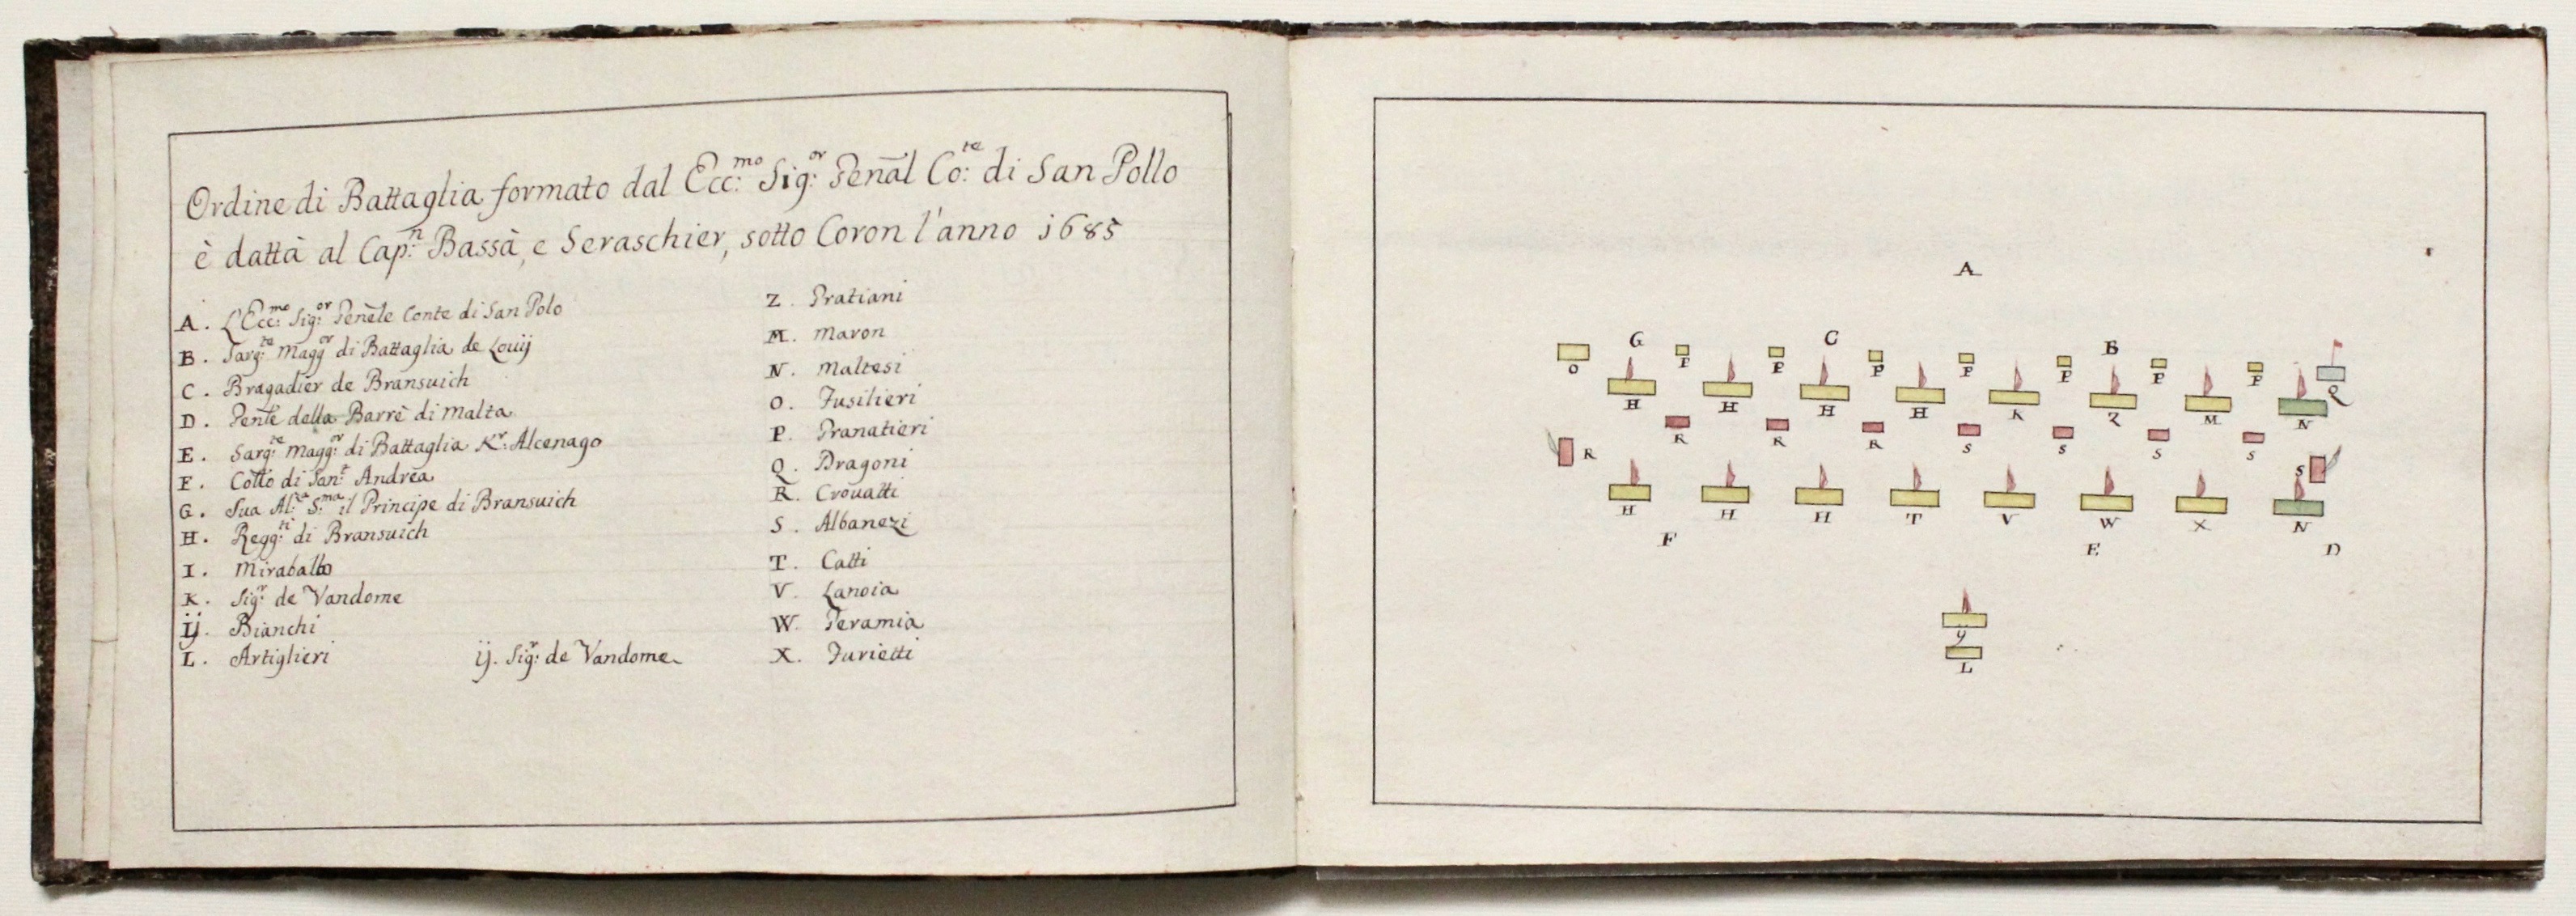 Ordine di Battaglia formato dal Ecc:mo Sig:or Genāl Co:te di San Pollo
è dattà al Cap:n Bassà, e Seraschier, sotto Coron l'anno 1685
A. L'Ecc:mo Sig:or Genēle Conte di San Polo
B. Sarg:te Magg:or di Battaglia de Louij
C. Bragadier de Bransuich
D. Gente della Barrè di Malta
E. Sarg:te Magg:or di Battaglia K:r Alcenago
F. Cotto di San:t Andrea
G. Sua Al:a S:ma il Principe di Bransuich
H. Regg:ti di Bransuich
I. Miraballo
K. Sig:r de Vandome
ij. Bianchi
L. Artiglieri
ij. Sig:r de Vandome
Z. Gratiani
M. Maron
N. Maltesi
O. Fusilieri
P. Granatieri
Q. Dragoni
R. Crouatti
S. Albanezi
T. Catti
V. Lanoia
W. Geramia
X. Furietti
A
G C B
O P P P P P P P Q
H H H H K Z M N
R R R R S S S S S
H H H T V W X N
F E D
y
L